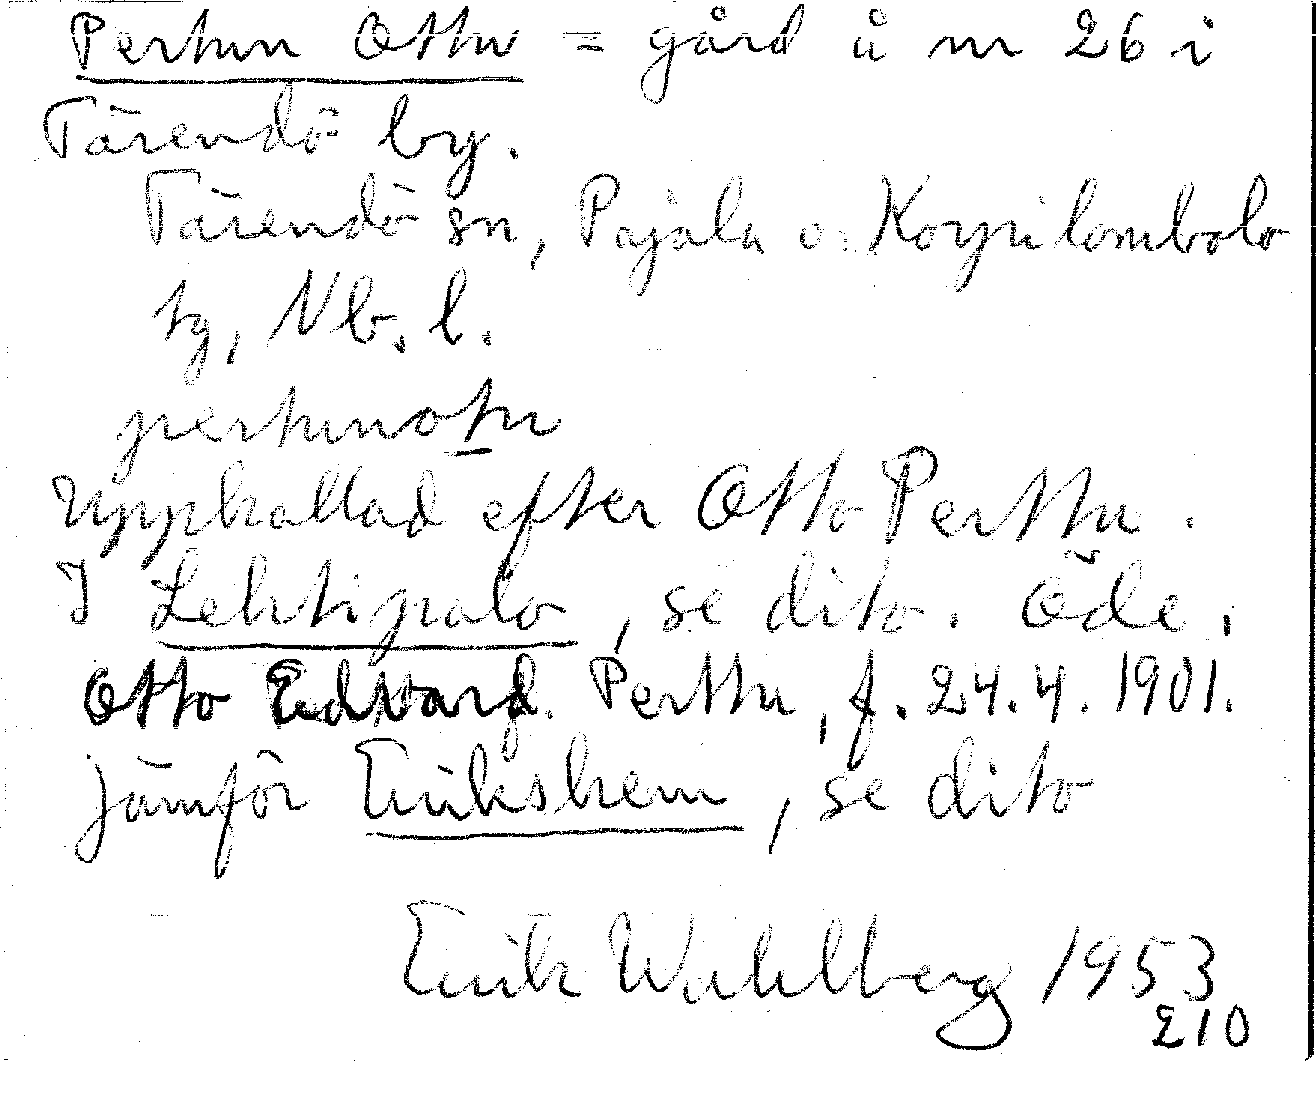 Perttun Ottu = gård å nr 26 i
Tärendö by.
Tärendö sn, Pajala o. Korpilombolo
tg, Nb. l.
perttunottu
Uppkallad efter Otto Perttu.
I Lehtipalo, se dito. Öde.
Otto Edvard Perttu, f. 24.4.1901.
jämför Erikshem, se dito
Erik Wahlberg 1953
210